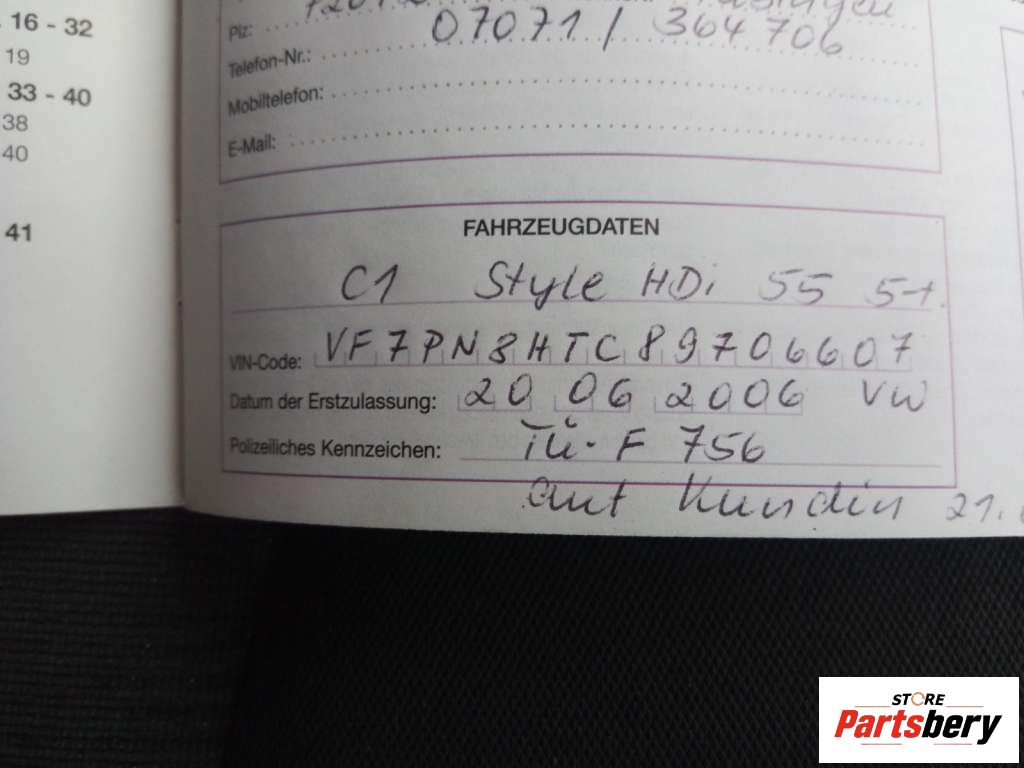 16 - 32
19
33 - 40
38
40
41
Plz:
Telefon-Nr.: 07071 / 364 706
Mobiltelefon:
E-Mail:
FAHRZEUGDATEN
C1 Style HDi 55 5-t.
VIN-Code: VF7PN8HTC89706607
Datum der Erstzulassung: 20 06 2006 VW
Polizeiliches Kennzeichen: TÜ-F 756
aut Kundin 21.
STORE
Partsbery